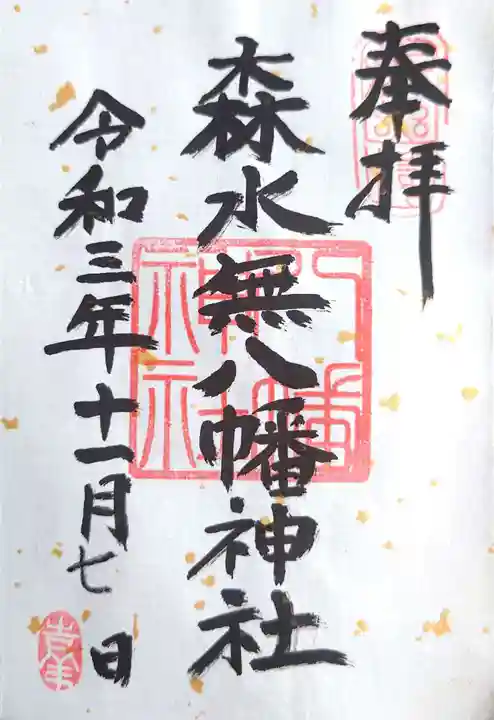 奉拝
森水無八幡神社
令和三年十一月七日
八幡神社